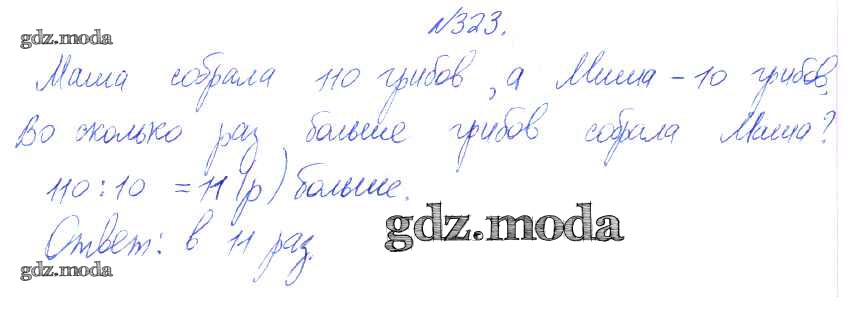 №323.
gdz.moda
Маша собрала 110 грибов, а Миша - 10 грибов.
Во сколько раз больше грибов собрала Маша?
110 : 10 = 11 (р) больше.
gdz.moda
Ответ: в 11 раз.
gdz.moda